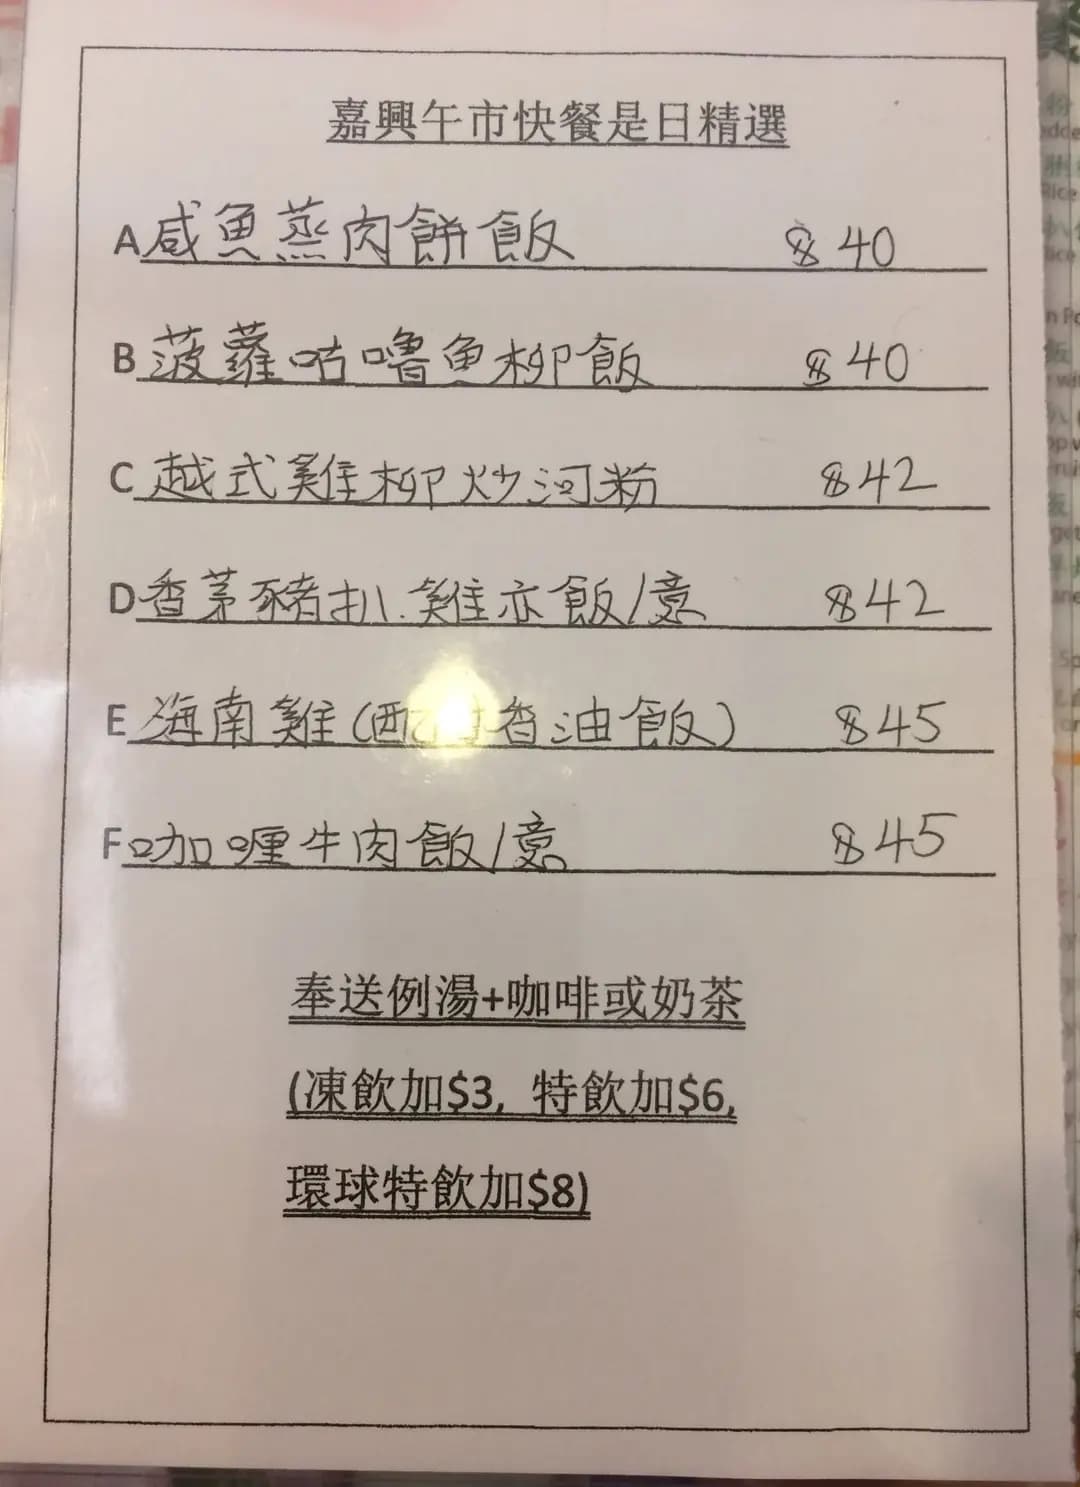 嘉興午市快餐是日精選
A咸魚蒸肉餅飯 $40
B菠蘿咕嚕魚柳飯 $40
C越式雞柳炒河粉 $42
D香茅豬扒.雞亦飯/意 $42
E海南雞(配 香油飯) $45
F咖喱牛肉飯/意 $45
奉送例湯+咖啡或奶茶
(凍飲加$3, 特飲加$6,
環球特飲加$8)